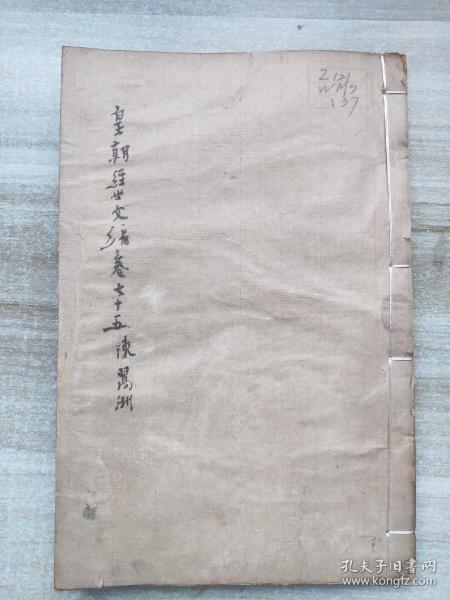 皇朝經世文編卷七十五陳鶚洲
137
孔夫子旧书网
www.kongfz.com